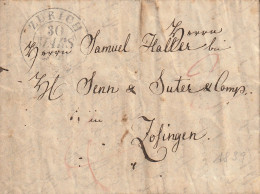 ZURICH
30
MÄRZ
Herrn
Herrn Samuel Haller bei
H Senn & Suter & Comp.
in
Zofingen